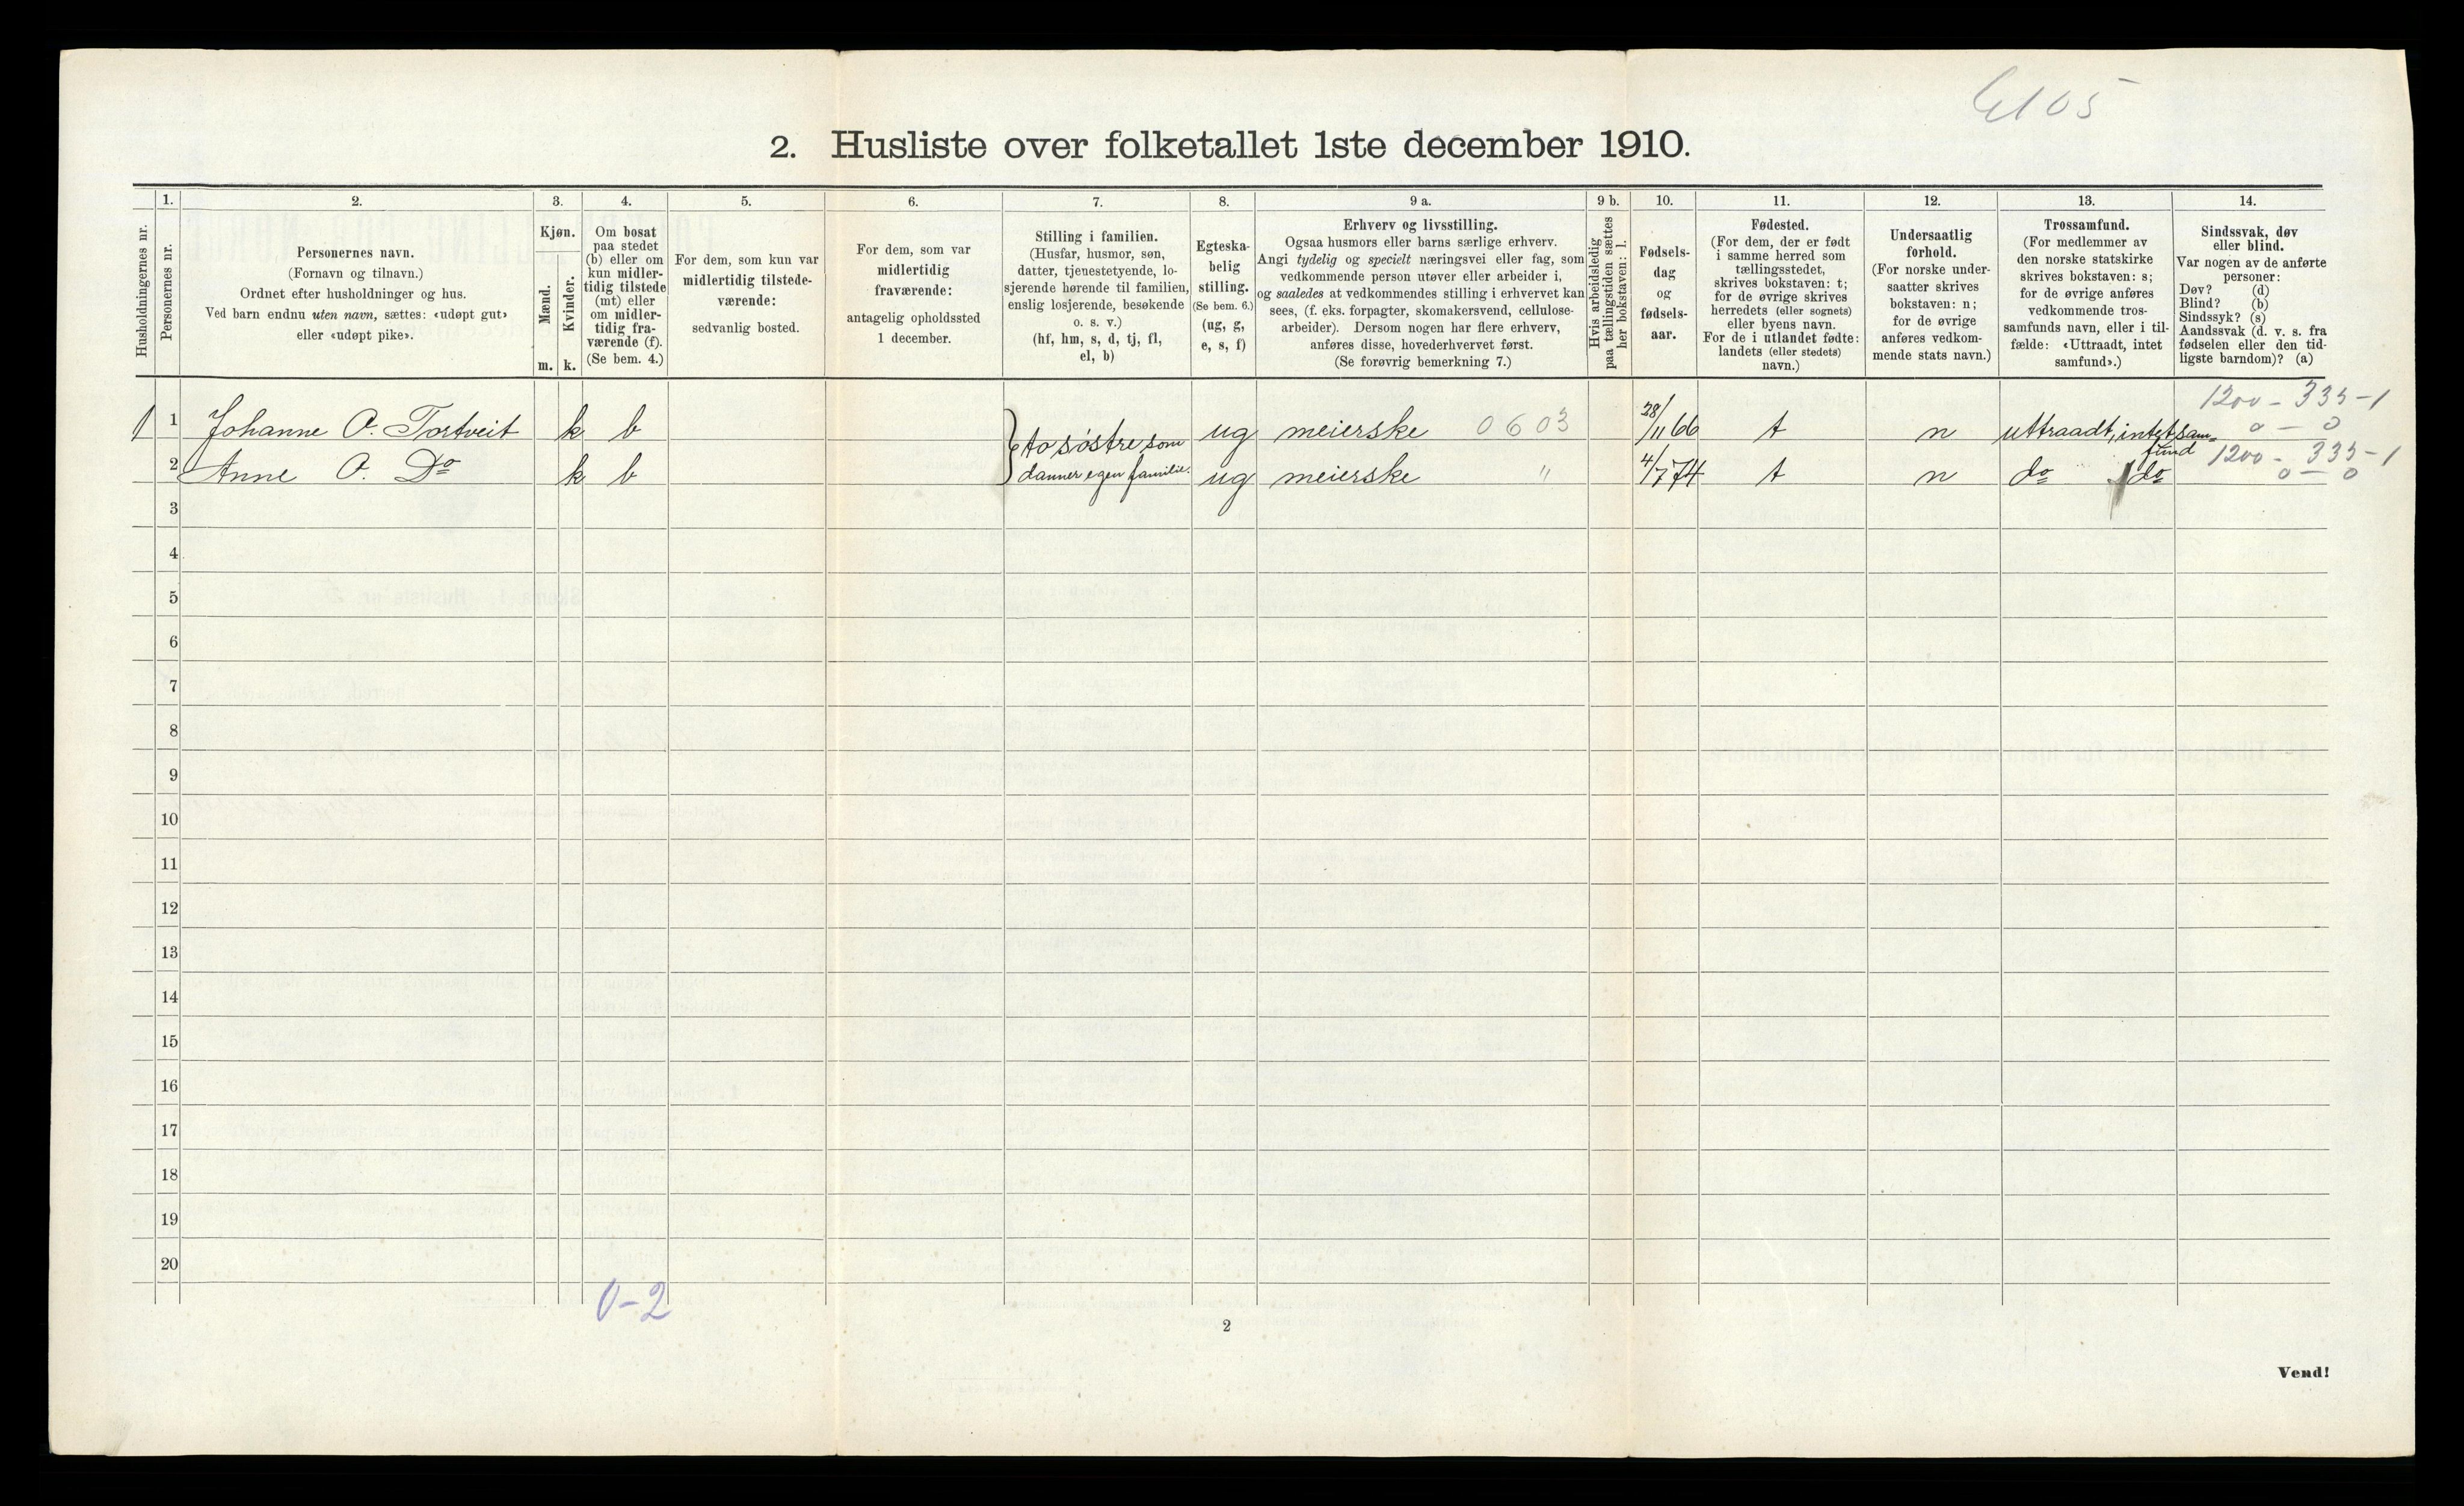 2105
2. Husliste over folketallet 1ste december 1910.
Husholdningernes nr.
1.
Personernes nr.
2.
Personernes navn.
(Fornavn og tilnavn.)
Ordnet efter husholdninger og hus.
Ved barn endnu uten navn, sættes: «udøpt gut»
eller «udøpt pike».
3.
Kjøn.
Mænd.
Kvinder.
m. k.
4.
Om bosat
paa stedet
(b) eller om
kun midler-
tidig tilstede
(mt) eller
om midler-
tidig fra-
værende (f).
(Se bem. 4.)
5.
For dem, som kun var
midlertidig tilstede-
værende:
sedvanlig bosted.
6.
For dem, som var
midlertidig
fraværende:
antagelig opholdssted
1 december.
7.
Stilling i familien.
(Husfar, husmor, søn,
datter, tjenestetyende, lo-
sjerende hørende til familien,
enslig losjerende, besøkende
o. s. v.)
(hf, hm, s, d, tj, fl,
el, b)
8.
Egteska-
belig
stilling.
(Se bem. 6.)
(ug, g,
e, s, f)
9 a.
Erhverv og livsstilling.
Ogsaa husmors eller barns særlige erhverv.
Angi tydelig og specielt næringsvei eller fag, som
vedkommende person utøver eller arbeider i,
og saaledes at vedkommendes stilling i erhvervet kan
sees, (f. eks. forpagter, skomakersvend, cellulose-
arbeider). Dersom nogen har flere erhverv,
anføres disse, hovederhvervet først.
(Se forøvrig bemerkning 7.)
9 b.
Hvis arbeidsledig
paa tællingstiden sættes
her bokstaven: l.
10.
Fødsels-
dag
og
fødsels-
aar.
11.
Fødested.
(For dem, der er født
i samme herred som
tællingsstedet,
skrives bokstaven: t;
for de øvrige skrives
herredets (eller sognets)
eller byens navn.
For de i utlandet fødte:
landets (eller stedets)
navn.)
12.
Undersaatlig
forhold.
(For norske under-
saatter skrives
bokstaven: n;
for de øvrige
anføres vedkom-
mende stats navn.)
13.
Trossamfund.
(For medlemmer av
den norske statskirke
skrives bokstaven: s;
for de øvrige anføres
vedkommende tros-
samfunds navn, eller i til-
fælde: «Uttraadt, intet
samfund».)
14.
Sindssvak, døv
eller blind.
Var nogen av de anførte
personer:
Døv? (d)
Blind? (b)
Sindssyk? (s)
Aandssvak (d. v. s. fra
fødselen eller den tid-
ligste barndom)? (a)
1200 - 335-1
0 - 0
1 1 Johanne O. Tortveit k b to søstre som ug meierske 0603 28/11 66 t n uttraadt, intet sam-
fund
1200 - 335-1
0 - 0
2 Anne O. Do k b danner egen familie. ug meierske " 4/7 74 t n do do
3
4
5
6
7
8
9
10
11
12
13
14
15
16
17
18
19
20
0-2
2
Vend!